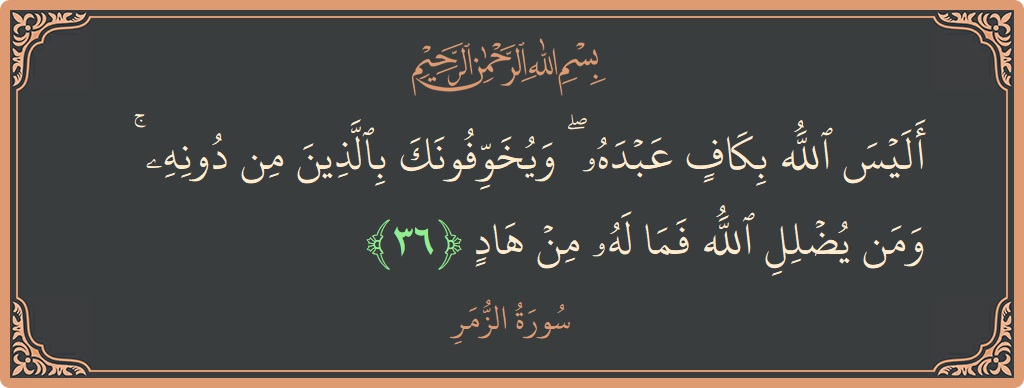 بِسْمِ اللَّهِ الرَّحْمَٰنِ الرَّحِيمِ
أَلَيْسَ ٱللَّهُ بِكَافٍ عَبْدَهُۥ ۖ وَيُخَوِّفُونَكَ بِٱلَّذِينَ مِن دُونِهِۦ ۚ
وَمَن يُضْلِلِ ٱللَّهُ فَمَا لَهُۥ مِنْ هَادٍ ﴿٣٦﴾
سُورَةُ الزُّمَرِ